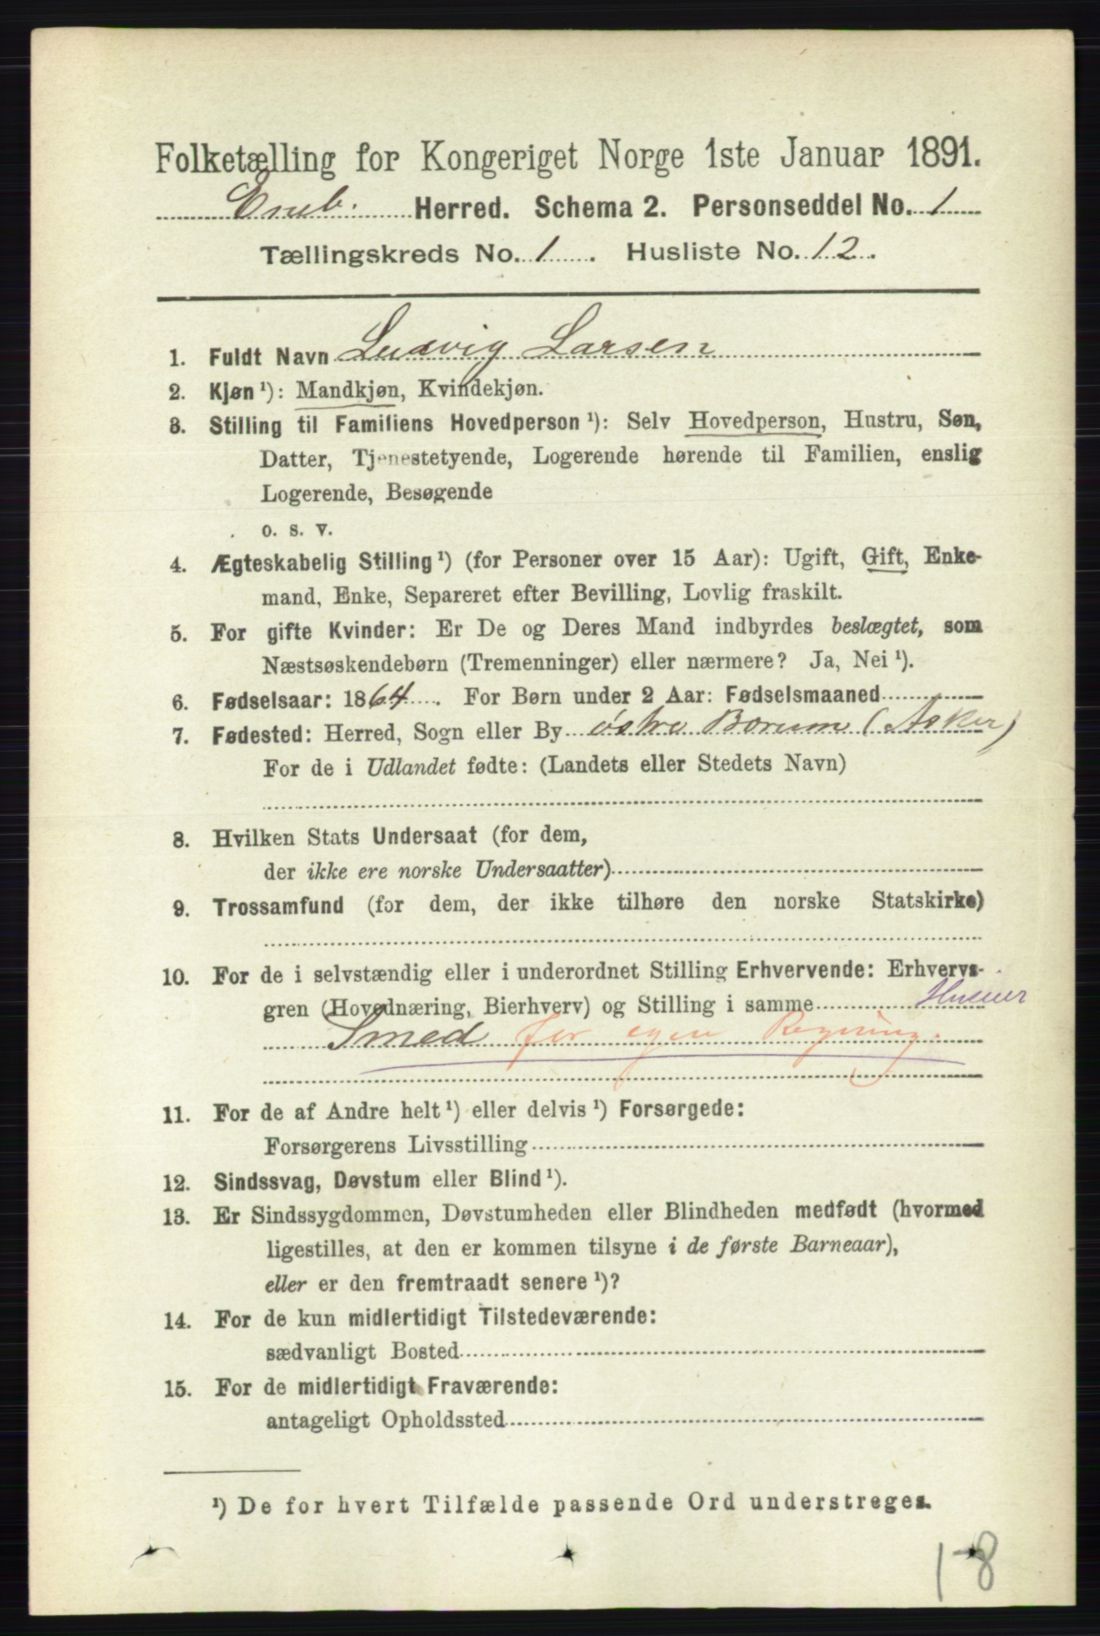 Folketælling for Kongeriget Norge 1ste Januar 1891.
Eneb. Herred. Schema 2. Personseddel No. 1
Tællingskreds No. 1. Husliste No. 12.
1. Fuldt Navn Ludvig Larsen
2. Kjøn ¹): Mandkjøn, Kvindekjøn.
3. Stilling til Familiens Hovedperson ¹): Selv Hovedperson, Hustru, Søn,
Datter, Tjenestetyende, Logerende hørende til Familien, enslig
Logerende, Besøgende
o. s. v.
4. Ægteskabelig Stilling ¹) (for Personer over 15 Aar): Ugift, Gift, Enke-
mand, Enke, Separeret efter Bevilling, Lovlig fraskilt.
5. For gifte Kvinder: Er De og Deres Mand indbyrdes beslægtet, som
Næstsøskendebørn (Tremenninger) eller nærmere? Ja, Nei ¹).
6. Fødselsaar: 1864. For Børn under 2 Aar: Fødselsmaaned
7. Fødested: Herred, Sogn eller By østre Bærum (Asker)
For de i Udlandet fødte: (Landets eller Stedets Navn)
8. Hvilken Stats Undersaat (for dem,
der ikke ere norske Undersaatter)
9. Trossamfund (for dem, der ikke tilhøre den norske Statskirke)
10. For de i selvstændig eller i underordnet Stilling Erhvervende: Erhvervs-
gren (Hovednæring, Bierhverv) og Stilling i samme
Smed for egen Regning.
11. For de af Andre helt ¹) eller delvis ¹) Forsørgede:
Forsørgerens Livsstilling
12. Sindssvag, Døvstum eller Blind ¹).
13. Er Sindssygdommen, Døvstumheden eller Blindheden medfødt (hvormed
ligestilles, at den er kommen tilsyne i de første Barneaar),
eller er den fremtraadt senere ¹)?
14. For de kun midlertidigt Tilstedeværende:
sædvanligt Bosted
15. For de midlertidigt Fraværende:
antageligt Opholdssted
¹) De for hvert Tilfælde passende Ord understreges.
1-8